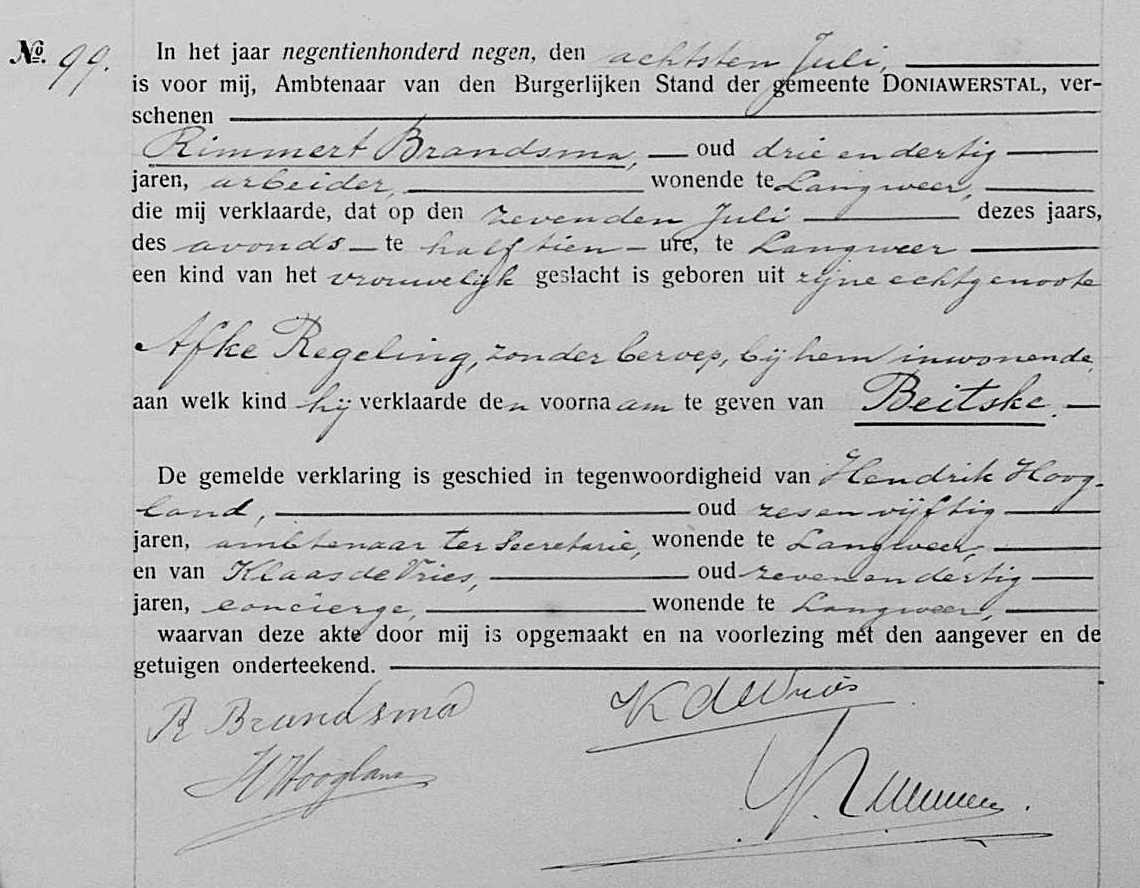 No. 99. In het jaar negentienhonderd negen, den achtsten Juli,
is voor mij, Ambtenaar van den Burgerlijken Stand der gemeente DONIAWERSTAL, ver-
schenen
Rimmert Brandsma, oud drie en dertig
jaren, arbeider, wonende te Langweer,
die mij verklaarde, dat op den zevenden Juli dezes jaars,
des avonds te half tien ure, te Langweer
een kind van het vrouwelijk geslacht is geboren uit zijne echtgenoote
Afke Regeling, zonder beroep, bij hem inwonende,
aan welk kind hij verklaarde den voornaam te geven van Beitske.
De gemelde verklaring is geschied in tegenwoordigheid van Hendrik Hoog-
land, oud zes en vijftig
jaren, ambtenaar ter Secretarie, wonende te Langweer,
en van Klaas de Vries, oud zeven en dertig
jaren, concierge, wonende te Langweer,
waarvan deze akte door mij is opgemaakt en na voorlezing met den aangever en de
getuigen onderteekend.
R Brandsma K de Vries
H Hoogland